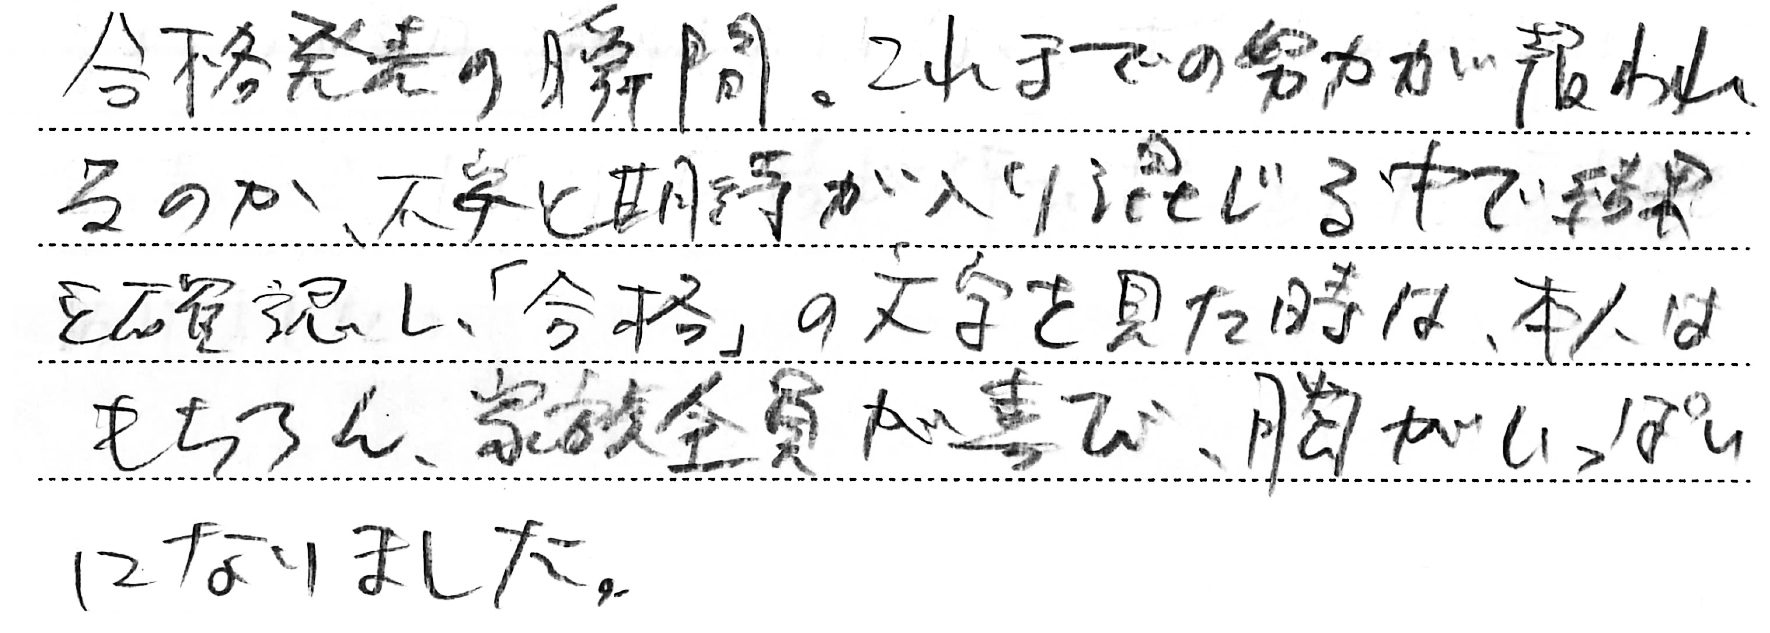 合格発表の瞬間。これまでの努力が報われ
るのか、不安と期待が入り混じる中で結果
を確認し、「合格」の文字を見た時は、本人は
もちろん、家族全員が喜び、胸がいっぱい
になりました。